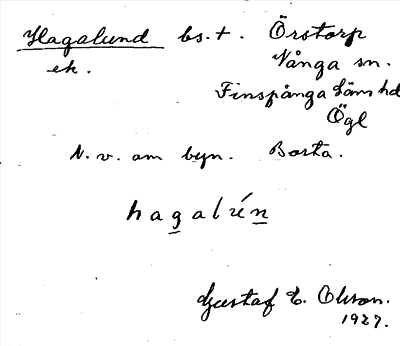 Hagalund bs. t. Örstorp
ek. Vånga sn.
Finspånga läns hd
Ögl
N. v. om byn. Borta.
hagalún
Gustaf E. Olson.
1927.